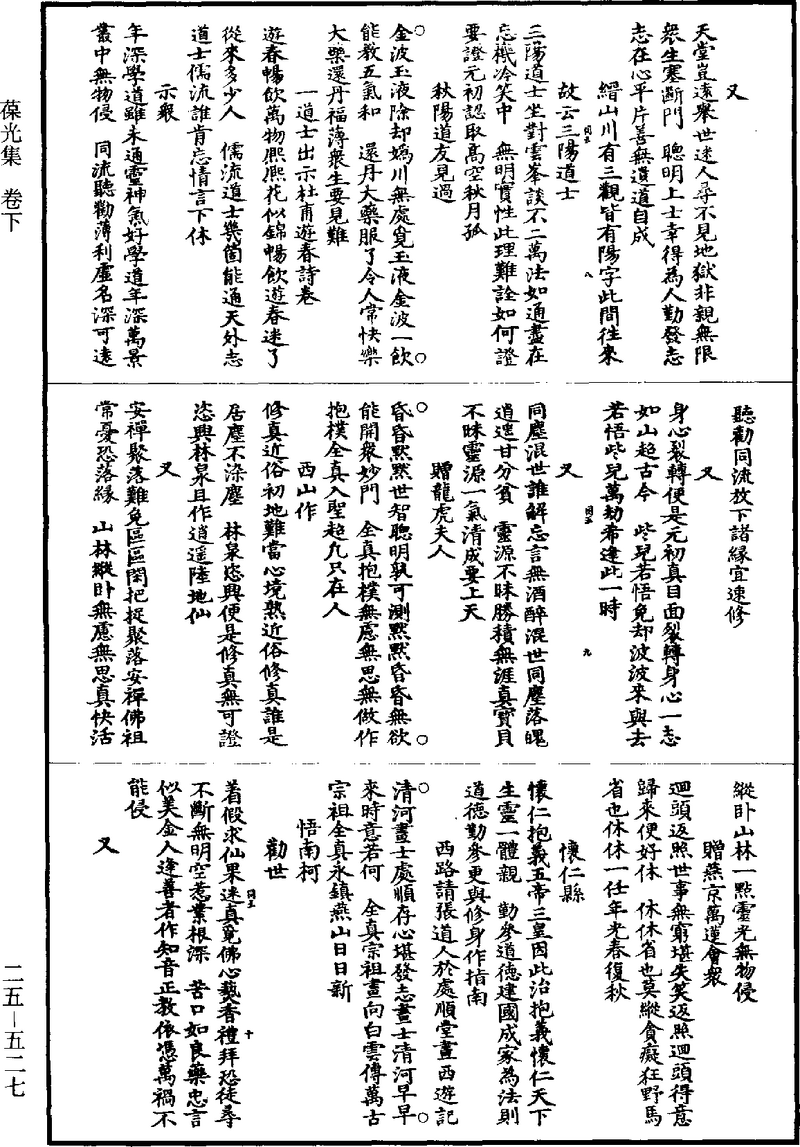 葆光集 卷下
又
天堂豈遠舉世迷人尋不見地獄非親無限
衆生塞斷門 聰明上士幸得為人勤發志
志在心平片善無遺道自成
縉山川有三觀皆有陽字此間往來
故云三陽道士
三陽道士坐對雲峯談不二萬法如通盡在
忘機冷笑中 無明實性此理難詮如何證
要證元初認取高空秋月孤
秋陽道友見過
金波玉液除却嬀川無處覓玉液金波一飲
能教五氣和 還丹大藥服了令人常快樂
大藥還丹福薄衆生要見難
一道士出示杜甫遊春詩卷
遊春暢飲萬物熙熙花似錦暢飲遊春迷了
從來多少人 儒流道士幾箇能通天外志
道士儒流誰肯忘情言下休
示衆
年深學道雖未通靈神氣好學道年深萬景
叢中無物侵 同流聽勸薄利虛名深可遠
聽勸同流放下諸緣宜速修
又
身心裂轉便是元初真目面裂轉身心一志
如山超古今 些兒若悟免却波波來與去
若悟些兒萬劫希逢此一時
又
同塵混世誰解忘言無酒醉混世同塵落魄
逍遙甘分貧 靈源不昧勝積無涯真寶貝
不昧靈源一氣清成要上天
贈龍虎夫人
昏昏默默世智聰明孰可測默默昏昏無欲
能開衆妙門 全真抱樸無慮無思無做作
抱樸全真入聖超凡只在人
西山作
修真近俗初地難當心境熟近俗修真誰是
居塵不染塵 林泉恣興便是修真無可證
恣興林泉且作逍遥陸地仙
又
安禪聚落難免區區閑把捉聚落安禪佛祖
常憂恐落緣 山林縱卧無慮無思真快活
縱卧山林一點靈光無物侵
贈燕京萬蓮會衆
迴頭返照世事無窮堪失笑返照迴頭得意
歸來便好休 休休省也莫縱貪癡狂野馬
省也休休一任年光春復秋
懷仁縣
懷仁抱義五帝三皇因此治抱義懷仁天下
生靈一體親 勤參道德建國成家為法則
道德勤參更與修身作指南
西路請張道人於處順堂畫西遊記
清河畫士處順存心堪發志畫士清河早早
來時意若何 全真宗祖畫向白雲傳萬古
宗祖全真永鎮燕山日日新
悟南柯
勸世
着假求仙果迷真覓佛心爇香禮拜恐徒尋
不斷無明空惹業根深 苦口如良藥忠言
似美金人逢善者作知音正教依憑萬禍不
能侵
又
二五—五二七